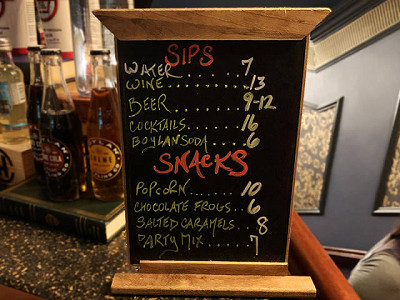 SIPS
WATER......7
WINE.........13
BEER........9-12
COCKTAILS....16
BOYLAN SODA..6
SNACKS
POPCORN......10
CHOCOLATE FROGS..6
SALTED CARAMELS...8
PARTY MIX......7